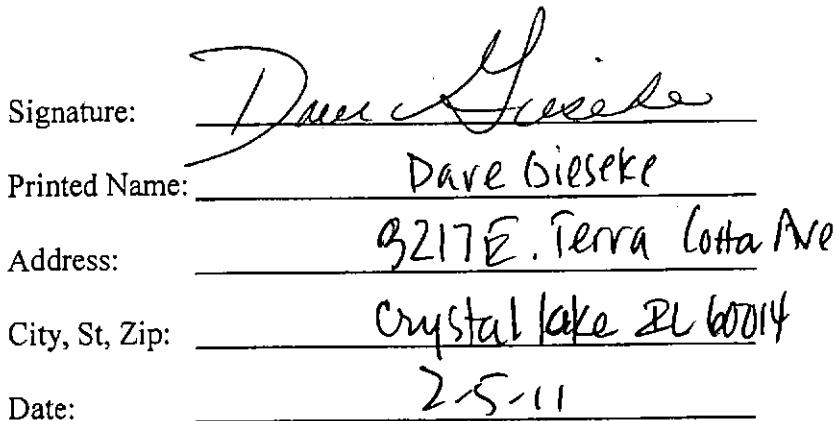 Signature: Dave Gieseke
Printed Name: Dave Gieseke
Address: 3217 E. Terra Cotta Ave
City, St, Zip: Crystal lake IL 60014
Date: 2-5-11